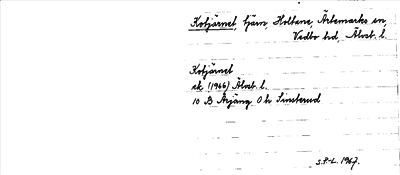 Kotjärnet, tjärn, Holtane, Ärtemarks sn,
Vedbo hd, Älvsb. l.
Kotjärnet
ek (1966) Älvsb. l.
10 B Årjäng 0 h Smeterud
S.P-L. 1967.